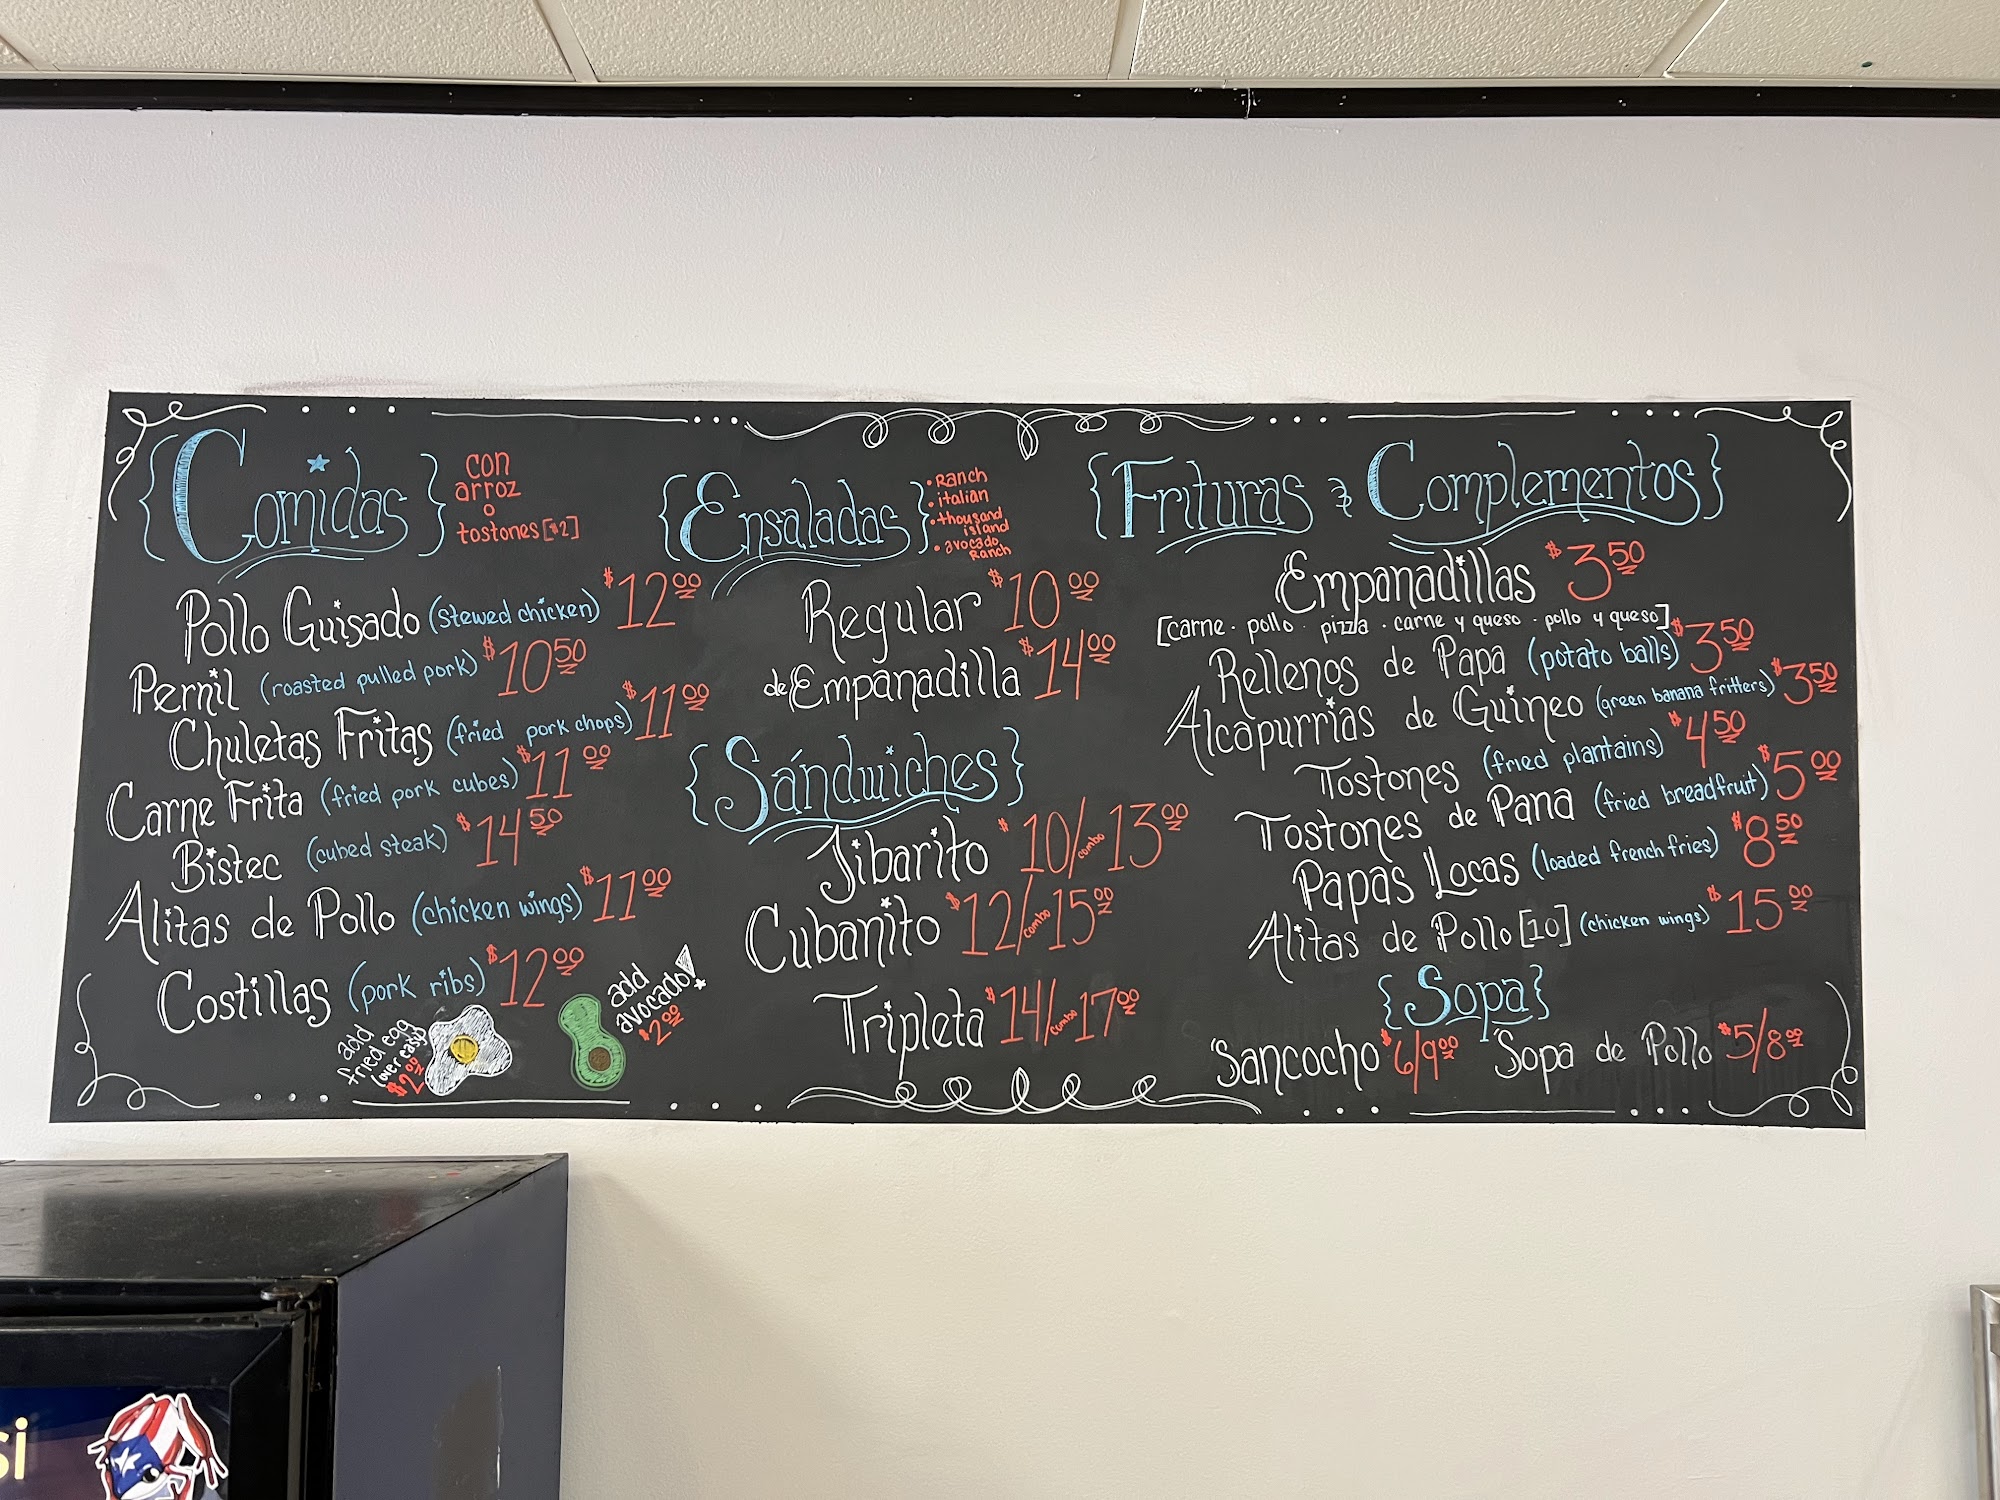 {Comidas}
con
arroz
o
tostones [$2]
Pollo Guisado (stewed chicken) $12.00
Pernil (roasted pulled pork) $10.50
Chuletas Fritas (fried pork chops) $11.00
Carne Frita (fried pork cubes) $11.00
Bistec (cubed steak) $14.50
Alitas de Pollo (chicken wings) $11.00
Costillas (pork ribs) $12.00
add
fried egg
(over easy)
$2.00
add
avocado!
$2.00
{Ensaladas}
• Ranch
• italian
• thousand
island
• avocado
Ranch
Regular $10.00
de Empanadilla $14.00
{Sándwiches}
Jibarito $10/combo 13.00
Cubanito $12/combo 15.00
Tripleta $14/combo 17.00
{Frituras & Complementos}
Empanadillas $3.50
[carne · pollo · pizza · carne y queso · pollo y queso]
Rellenos de Papa (potato balls) $3.50
Alcapurrias de Guineo (green banana fritters) $3.50
Tostones (fried plantains) $4.50
Tostones de Pana (fried breadfruit) $5.00
Papas Locas (loaded french fries) $8.50
Alitas de Pollo [10] (chicken wings) $15.00
{Sopa}
Sancocho $6/9.00 Sopa de Pollo $5/8.00
si